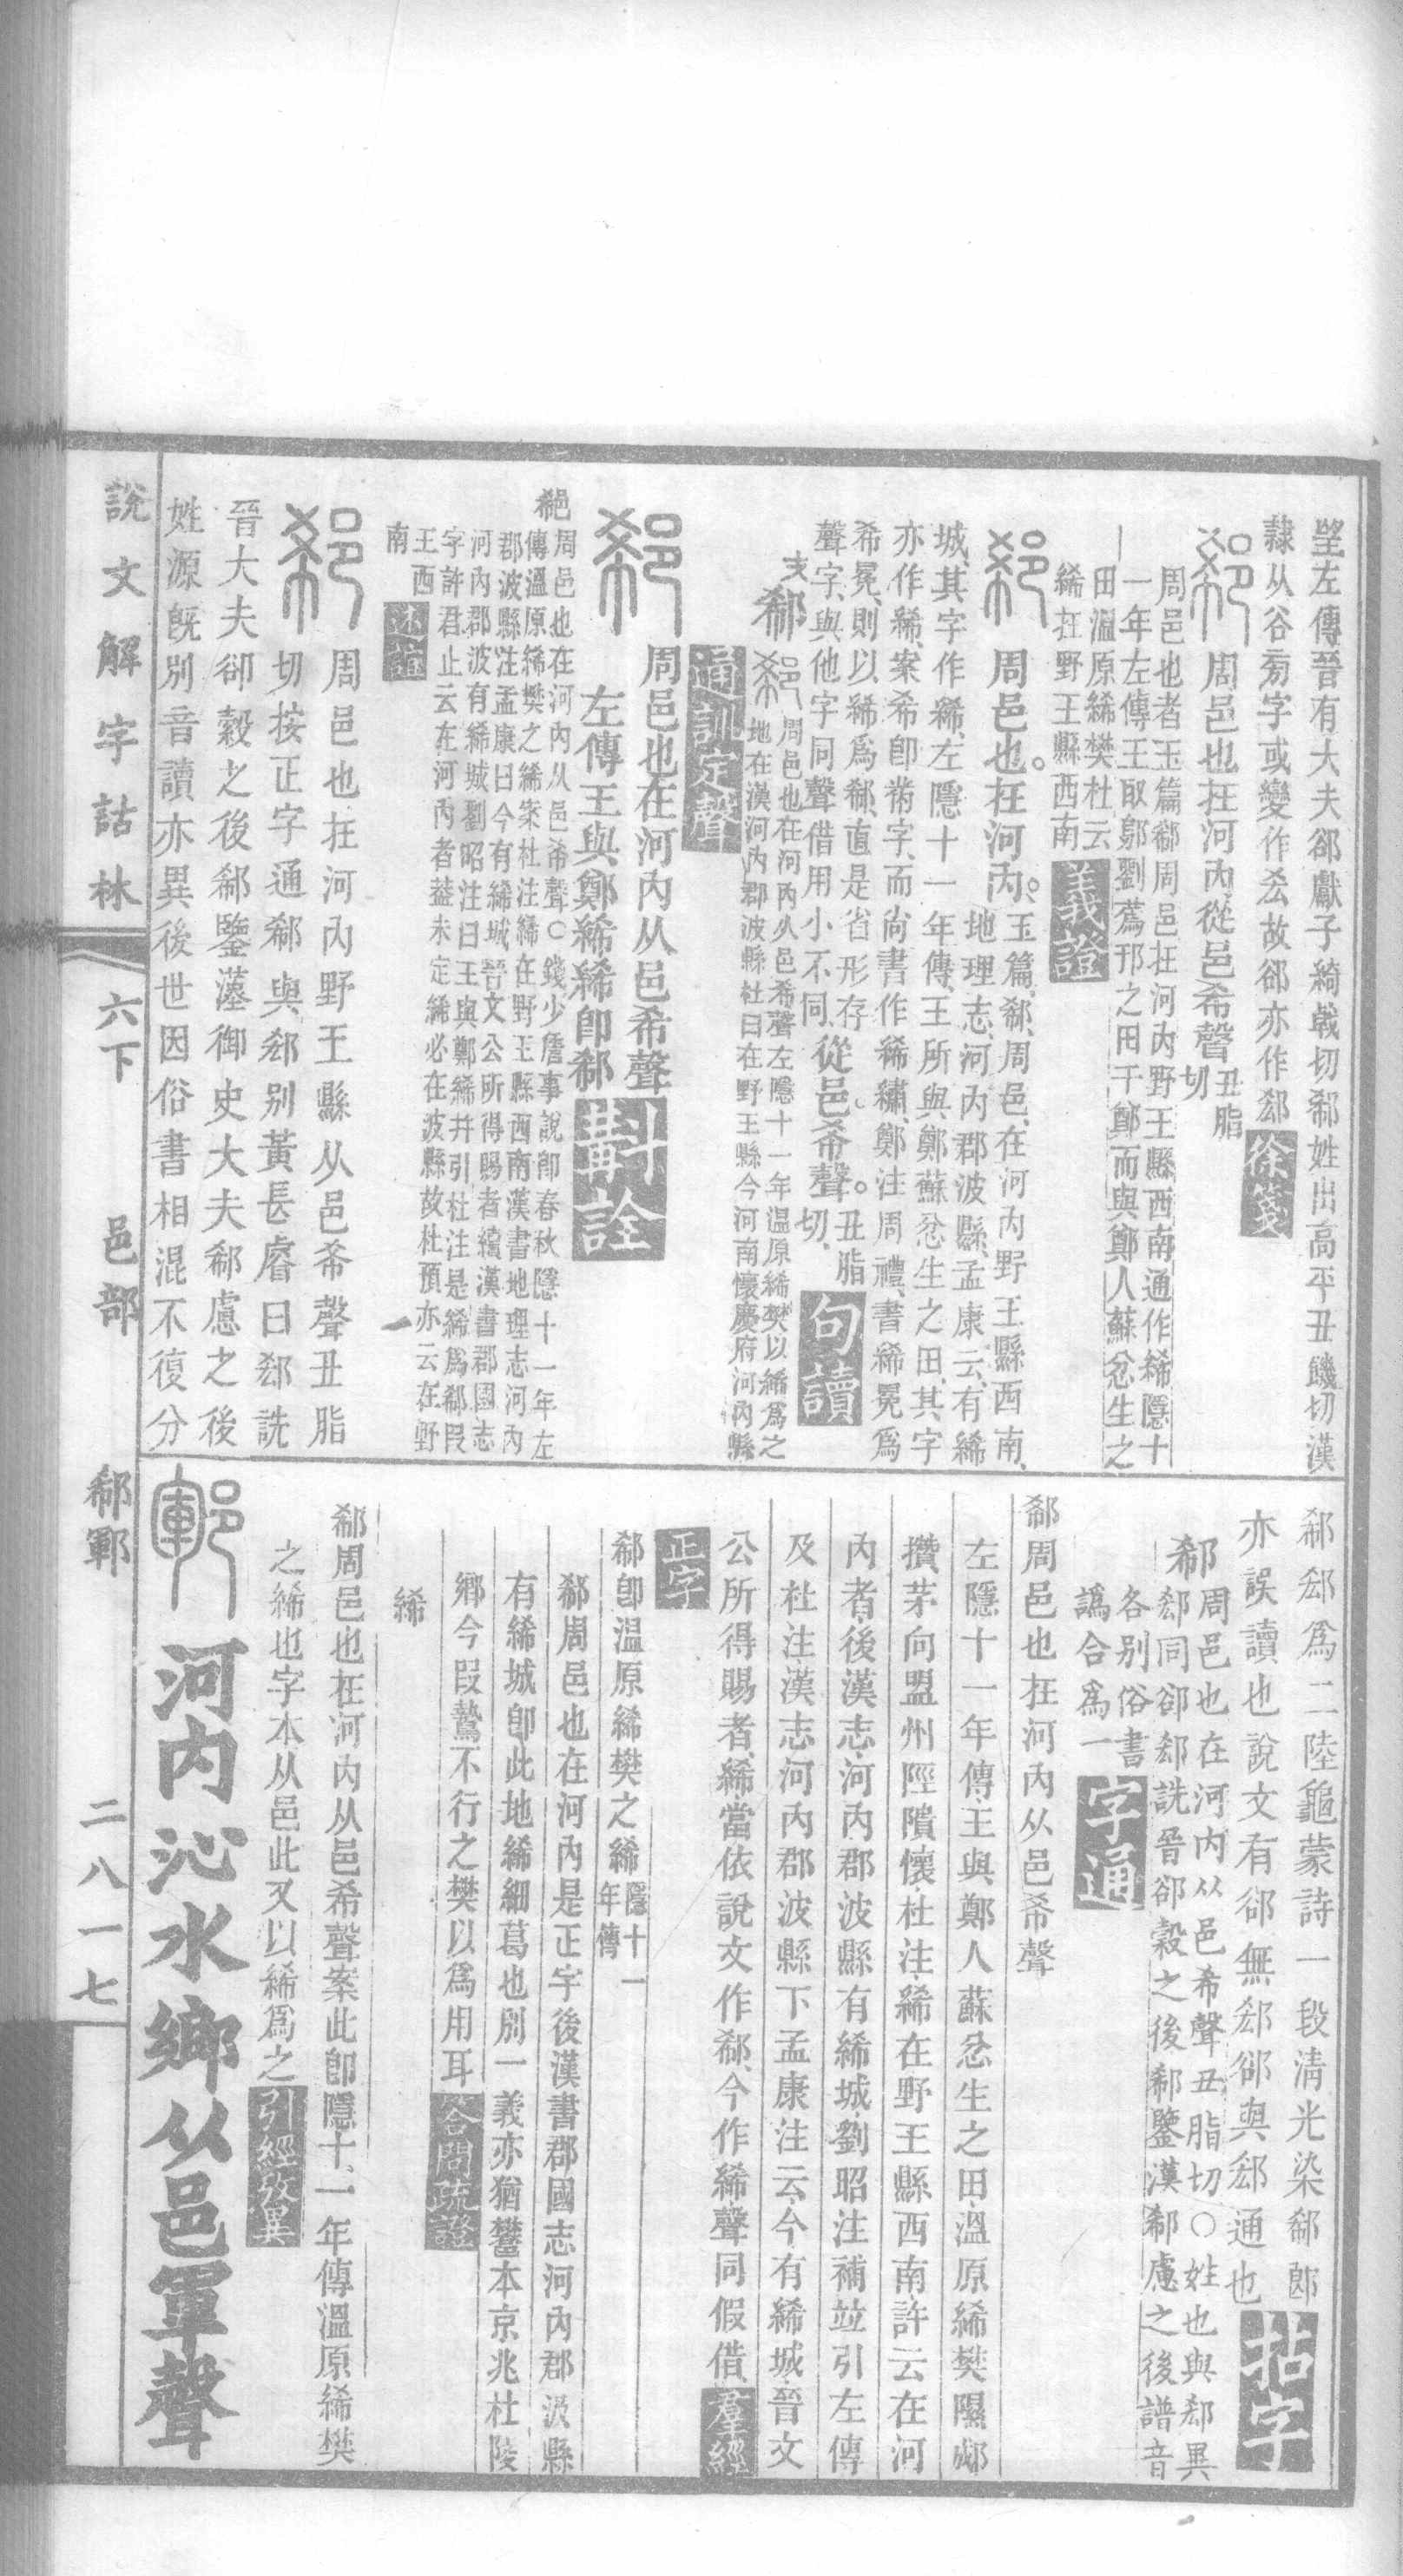 朢左傳晉有大夫郤獻子綺戟切郗姓出高平丑饑切漢
隸从谷旁字或變作厺故郤亦作郄徐箋
周邑也在河內從邑希聲丑脂切
周邑也者玉篇郗周邑在河內野王縣西南通作絺隱十
一年左傳王取鄔劉蔿邘之田于鄭而與鄭人蘇忿生之
田溫原絺樊杜云
絺在野王縣西南義證
周邑也在河內玉篇郗周邑在河內野王縣西南
地理志河內郡波縣孟康云有絺
城其字作絺左隱十一年傳王所與鄭蘇忿生之田其字
亦作絺案希卽黹字而尙書作絺繡鄭注周禮書絺冕爲
希冕則以絺爲郗直是省形存
聲字與他字同聲借用小不同從邑希聲丑脂切句讀
郗周邑也在河內从邑希聲左隱十一年溫原絺樊以絺爲之
地在漢河內郡波縣杜曰在野王縣今河南懷慶府河內縣
通訓定聲
周邑也在河內从邑希聲
左傳王與鄭絺絺卽郗斠詮
周邑也在河內从邑希聲○錢少詹事說卽春秋隱十一年左
傳溫原絺樊之絺案杜注絺在野王縣西南漢書地理志河內
郡波縣注孟康曰今有絺城晉文公所得賜者續漢書郡國志
河內郡波有絺城劉昭注曰王與鄭絺幷引杜注是絺爲郗叚
字許君止云在河內者葢未定絺必在波縣故杜預亦云在野
王西
南述誼
周邑也在河內野王縣从邑希聲丑脂
切按正字通郗與郄別黃長睿曰郄詵
晉大夫郤縠之後郗鑒漢御史大夫郗慮之後
姓源旣別音讀亦異後世因俗書相混不復分
郗郄爲二陸龜蒙詩一段淸光染郗郎
亦誤讀也說文有郤無郄郤與郄通也拈字
郗周邑也在河內从邑希聲丑脂切○姓也與郄異
郄同郤郄詵晉郤縠之後郗鑒漢郗慮之後譜音
各別俗書
譌合爲一字通
郗周邑也在河內从邑希聲
左隱十一年傳王與鄭人蘇忿生之田溫原絺樊隰郕
攢茅向盟州陘隤懷杜注絺在野王縣西南許云在河
內者後漢志河內郡波縣有絺城劉昭注補竝引左傳
及杜注漢志河內郡波縣下孟康注云今有絺城晉文
公所得賜者絺當依說文作郗今作絺聲同假借羣經
正字
郗卽溫原絺樊之絺隱十一年傳
郗周邑也在河內是正字後漢書郡國志河內郡波縣
有絺城卽此地絺細葛也別一義亦猶鄨本京兆杜陵
鄕今叚鷙不行之樊以爲用耳答問疏證
絺
郗周邑也在河內从邑希聲案此卽隱十一年傳溫原絺樊
之絺也字本从邑此又以絺爲之引經攷異
河內沁水鄉从邑軍聲
說文解字詁林 六下 邑部 郗鄆 二八一七